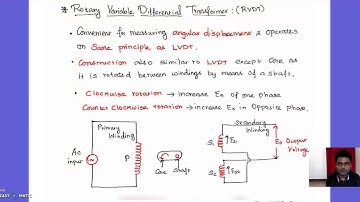 * Rotary Variable Differential Transformer: (RVDT)
• Convenient for measuring angular displacement & operates
on Same principle as LVDT.
• Construction also similar to LVDT except Core as
it is rotated between windings by means of a shaft.
• Clockwise rotation → increase Es of one phase
Counter Clockwise rotation → increase Es in Opposite phase.
Primary
Winding
Secondary
Winding
Ac
input
P
Core Shaft
S1
Es1
S2
Es2
Eo Output
Voltage